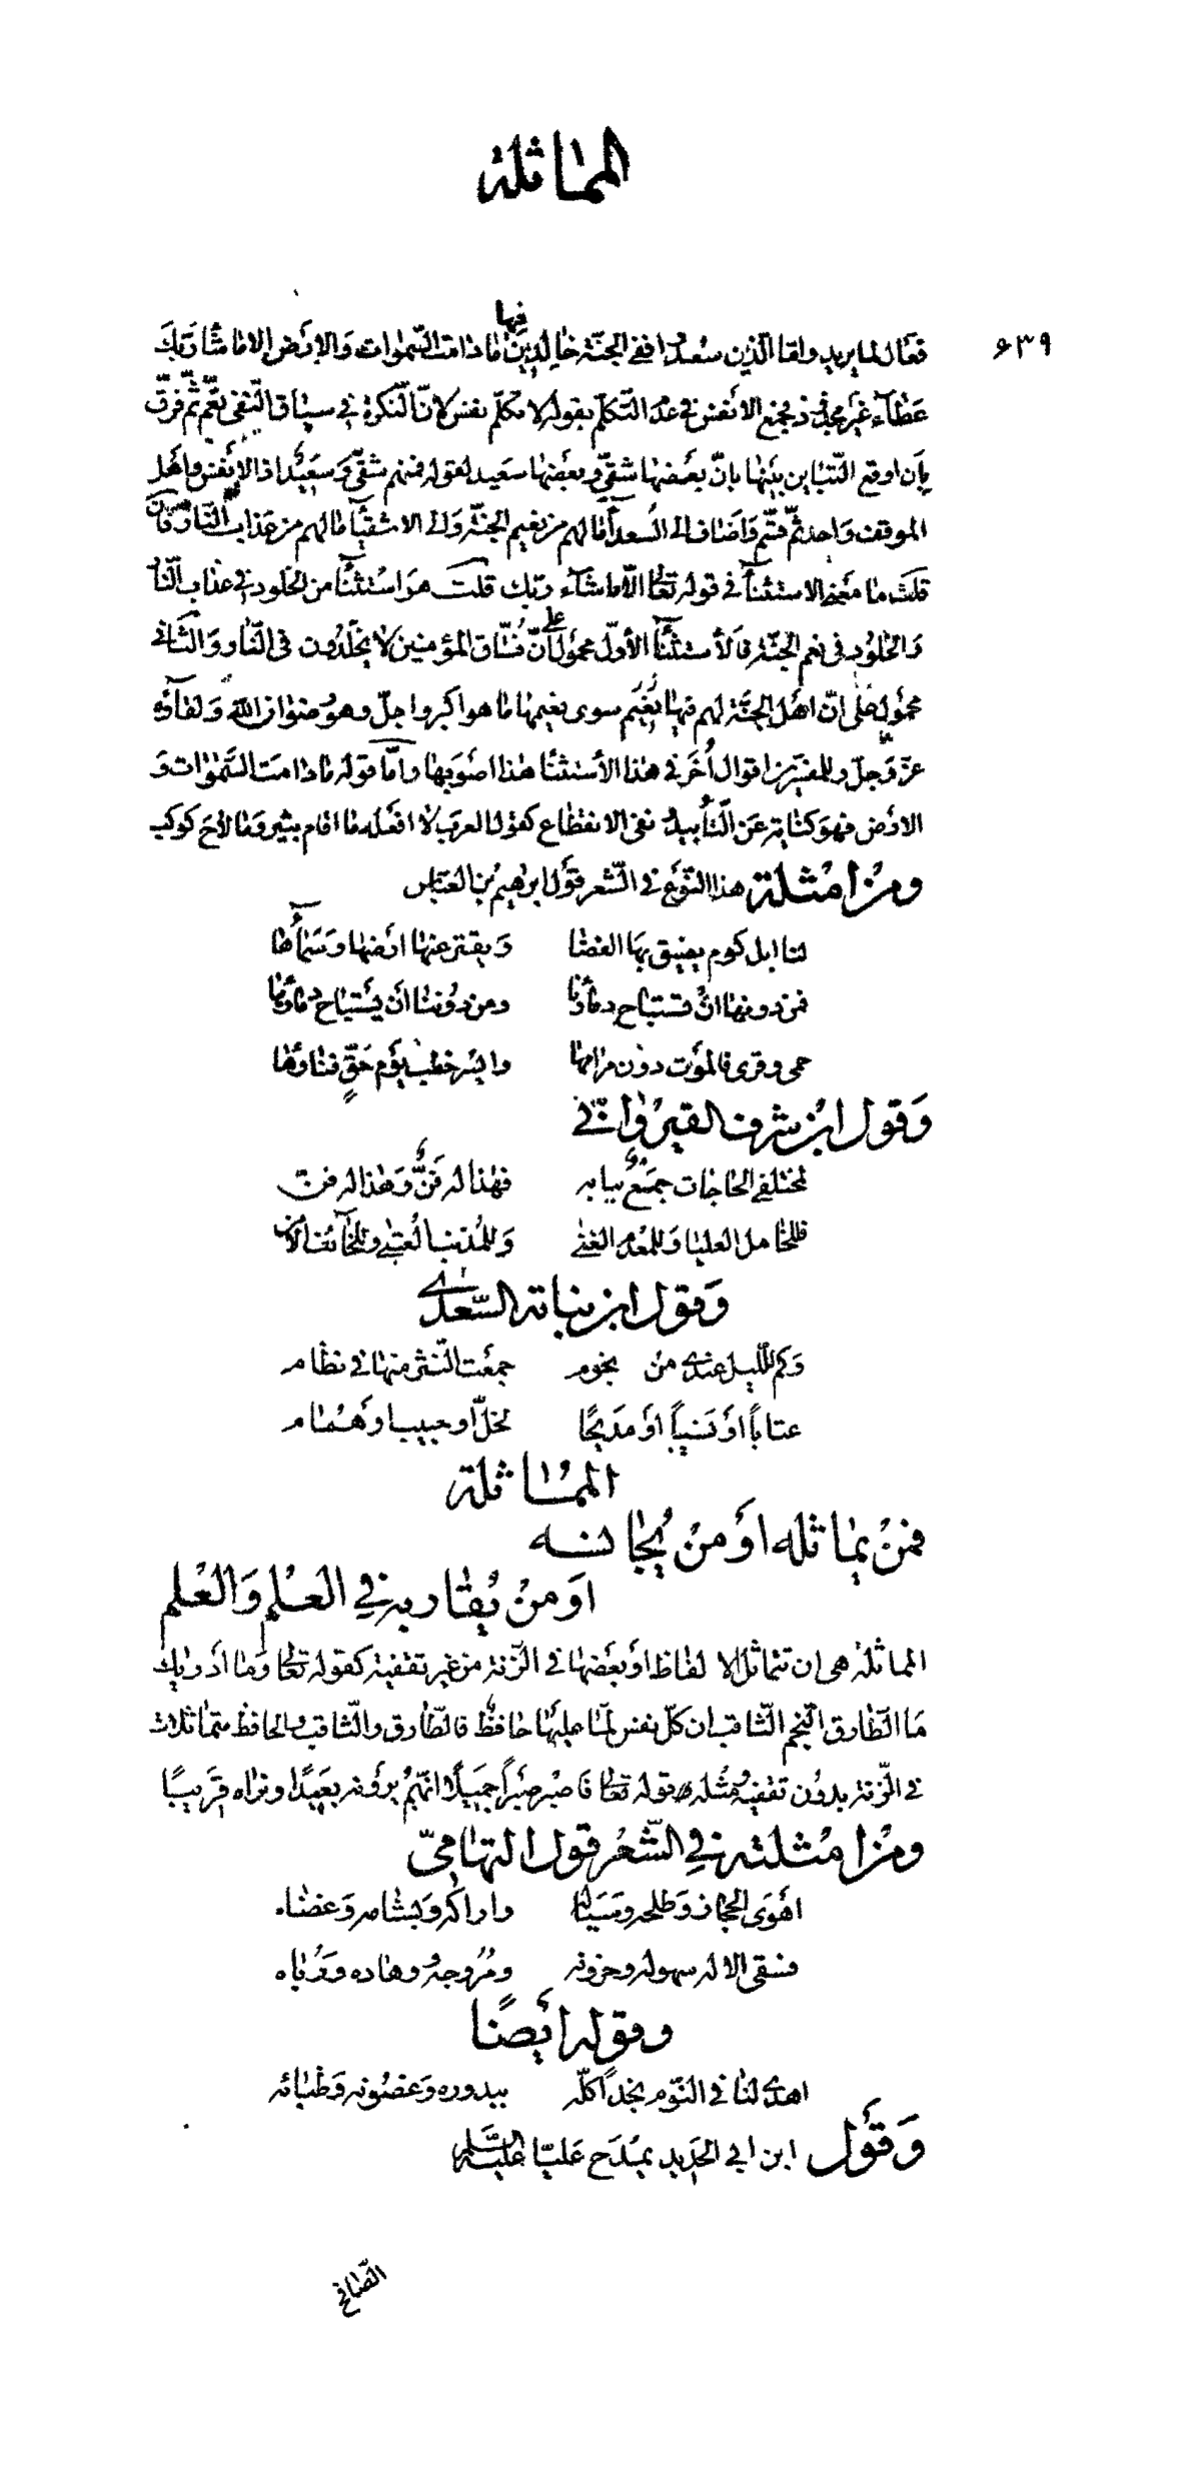 المماثلة
۶۳۹
فعّال لما يريد وامّا الّذين سعدوا ففي الجنّة خالدين فيها ما دامت السّموات والارض الا ما شاء ربّك
عطاء غير مجذوذ فجمع الانفس في عدم التكلّم بقوله لا تكلّم نفس لانّ النّكرة في سياق النّفي تعمّ ثمّ فرّق
بأن اوقع التّباين بينها بانّ بعضها شقيّ وبعضها سعيد لقوله فمنهم شقيّ وسعيد اذ الانفس واهل
الموقف واحد ثمّ قسّم واضاف الى السعداء ما لهم من نعيم الجنّة والى الاشقياء ما لهم من عذاب النّار فان
قلت ما معنى الاستثناء في قوله تعالى الّا ما شاء ربّك قلت هو استثناء من الخلود في عذاب النّار
والخلود في نعيم الجنّة فالأستثناء الأوّل محمول على انّ فسّاق المؤمنين لا يخلّدون في النّار والثّاني
محمول على انّ اهل الجنّة لهم فيها نعيم سوى نعيمها ما هو اكبر واجلّ وهو رضوان الله ولقاؤه
عزّ وجلّ وللمفسّرين اقوال أخر في هذا الأستثناء هذا اصوبها وامّا قوله ما دامت السّموات و
الارض فهو كناية عن التّأبيد ونفي الانقطاع كقول العرب لا افعله ما اقام ثبير وما لاح كوكب
ومن امثلة هذا النّوع في الشّعر قول ابرهيم بن العبّاس
لنا ابل كوم يضيق بها الفضا ويفتر عنها ارضها وسماؤها
فمن دونها ان تستباح دماؤنا ومن دوننا أن يستباح دماؤها
حمى وقرى فالموت دون مرامها وايسر خطب يوم حقّ فناؤها
وقول ابن شرف القيرواني
لمختلفي الحاجات جمع ببابه فهذا له فنّ وهذا له فن
فللخامل العليا وللمعدم الغنى وللمذنب العتبى وللخائف الامن
وقول ابن نباتة السّعدي
وكم لليل عندي من نجوم جمعت النّثر منها في نظام
عتاباً او نسيباً او مديحًا لخلّ او حبيب او همام
المماثلة
فمن يماثله او من يجانسه
او من يقاربه في العلم والعلم
المماثلة هي ان تتماثل الالفاظ او بعضها في الزّنة من غير تقفية كقوله تعالى وما ادريك
ما الطّارق النّجم الثّاقب ان كلّ نفس لمّا عليها حافظ فالطّارق والثّاقب والحافظ متماثلات
في الزّنة بدون تقفية ومثله قوله تعالى فاصبر صبراً جميلاً انّهم يرونه بعيدًا ونراه قريبًا
ومن امثلته في الشّعر قول التهاميّ
اهوى الحجاز وطلحه وسياله واراكه وبشامه وعضاه
فسقى الاله سهوله وحزونه ومروجه ووهاده ورباه
وقوله أيضًا
اهدى لنا في النّوم نجداً كلّه ببدوره وغصونه وظبائه
وقول ابن ابي الحديد يمدح عليّا عليه السّلم